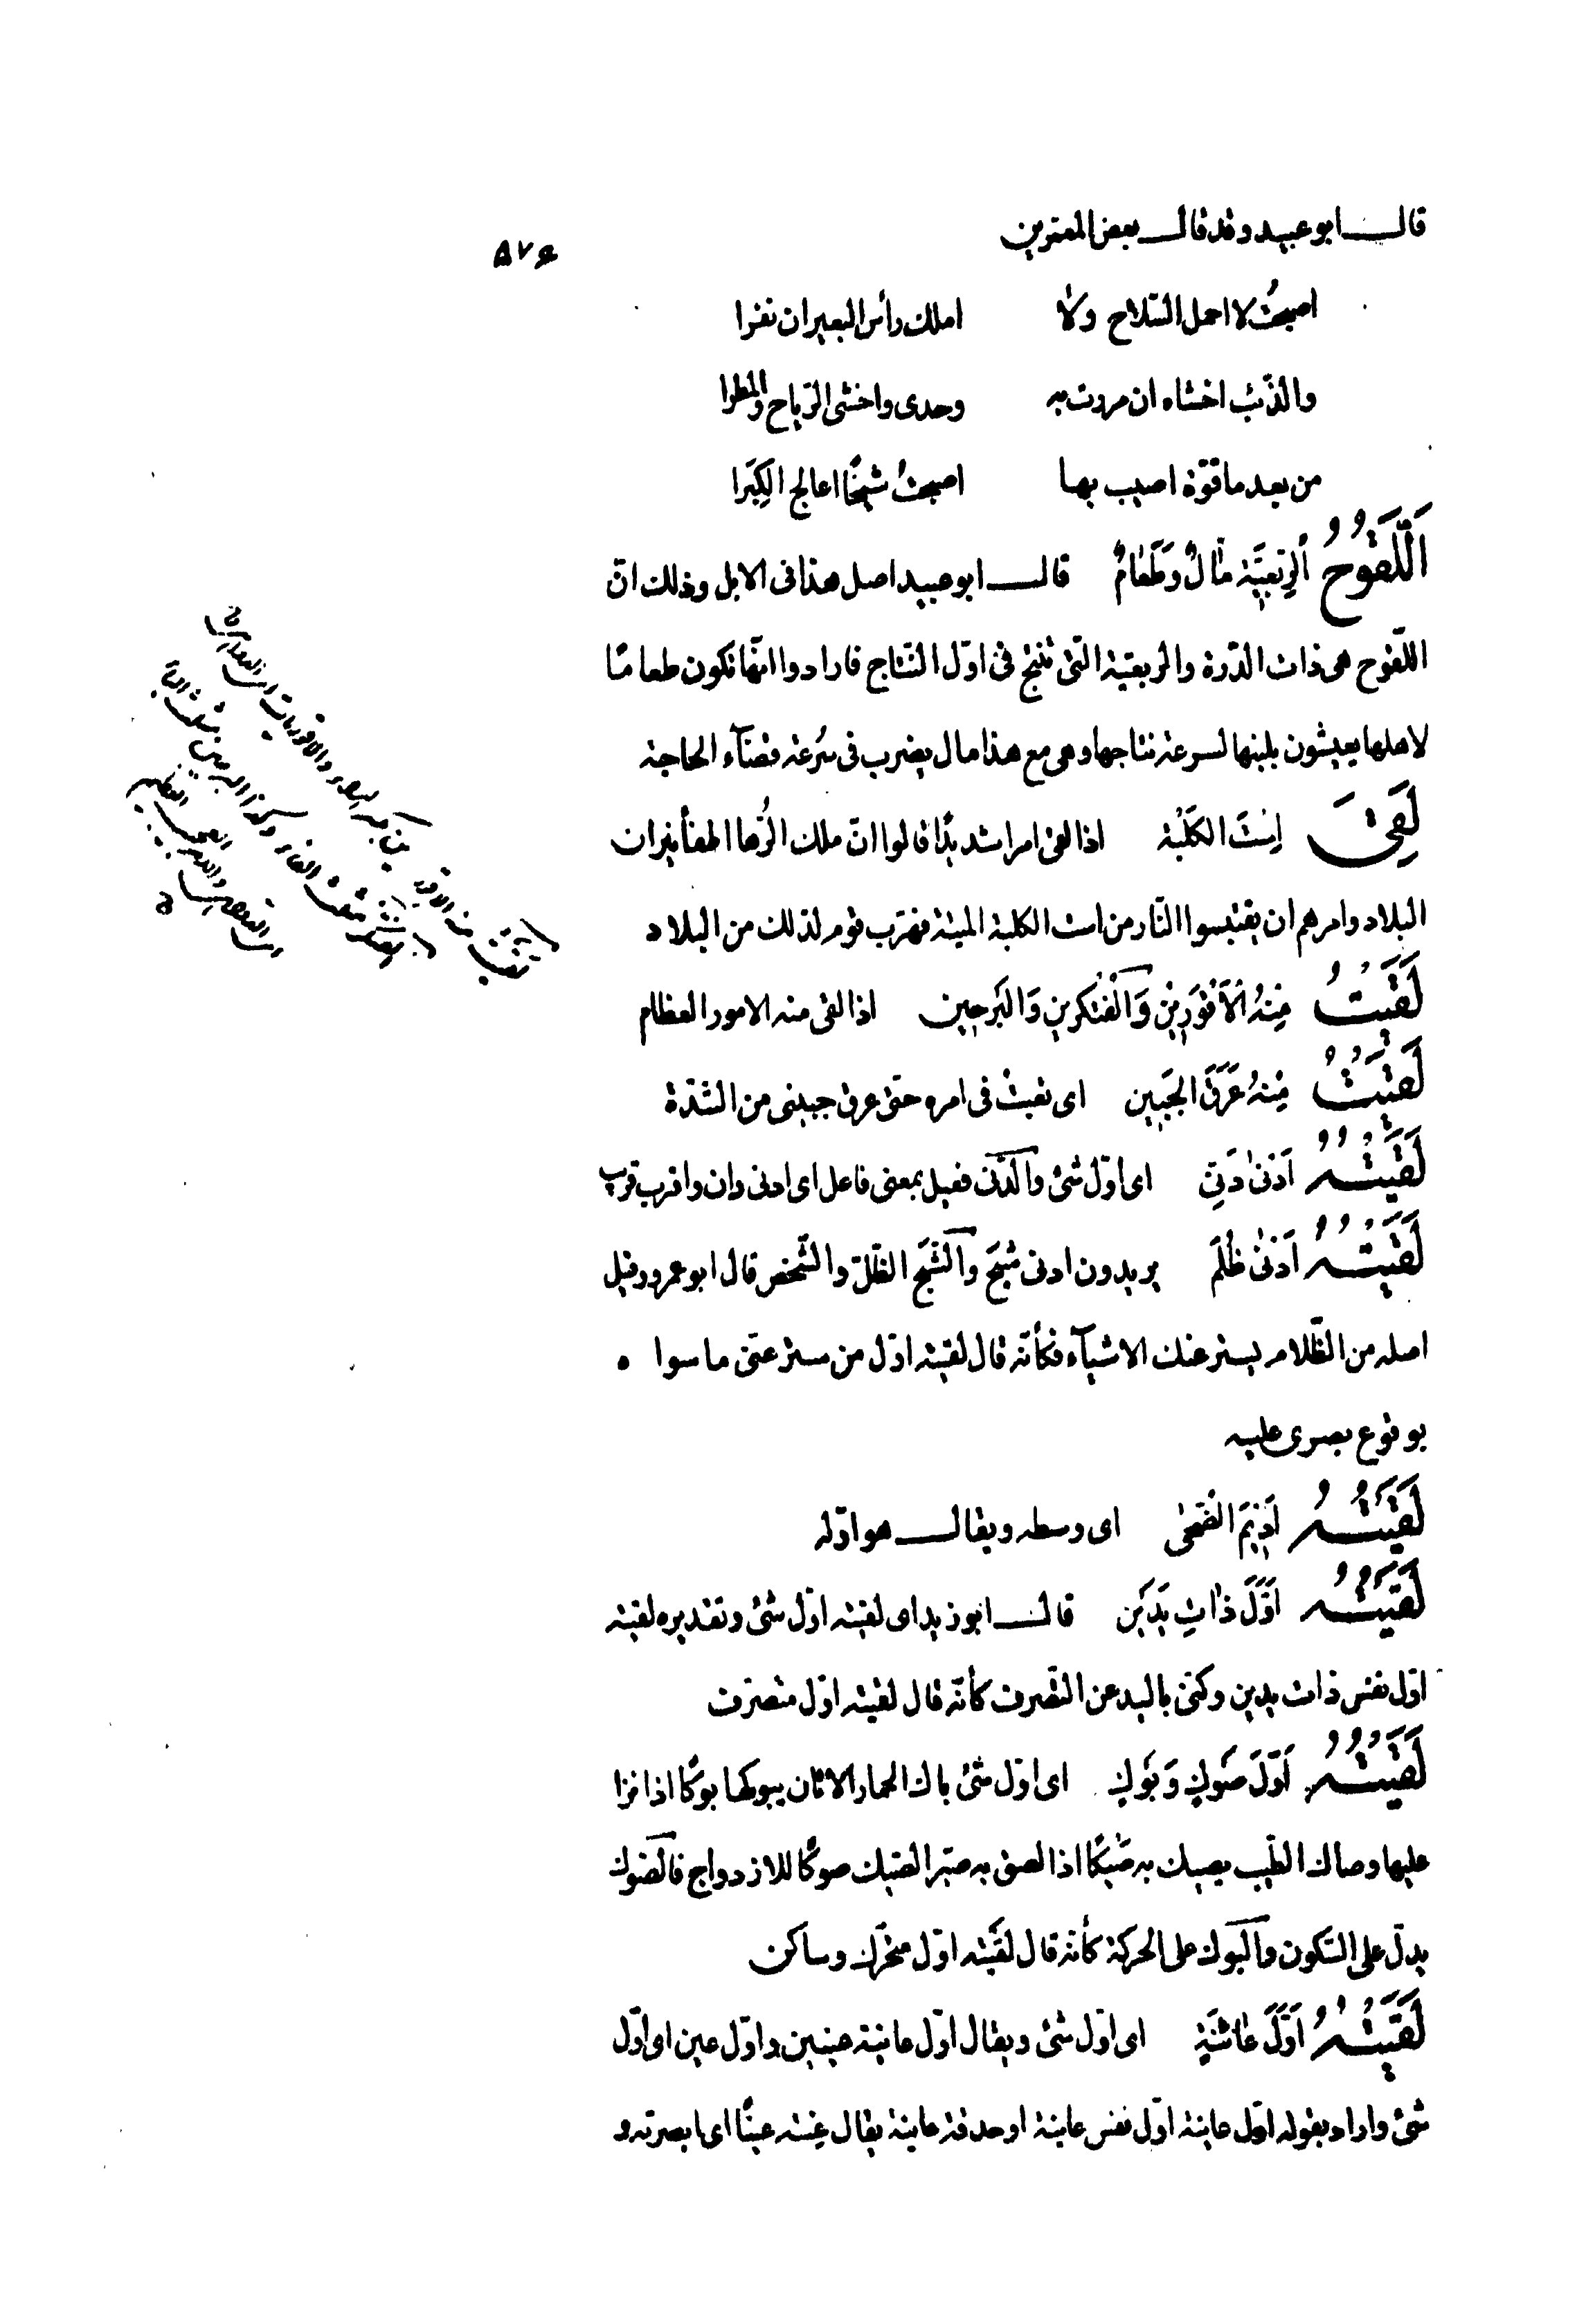 ٥٧٤
قال ابو عبيد وقد قال بعض المعمرين
اصبحتُ لا احمل السّلاح ولا املك رأس البعير ان نفرا
والذّئب اخشاه ان مررت به وحدى واخشى الرّياح والمطرا
من بعد ما قوّة اصيب بها اصبحتُ شيخًا اعالج الكِبَرا
اَللَّقُوحُ اَلرِّبْعِيَّةُ مَالٌ وَطَعَامٌ قال ابو عبيد اصل هذا فى الابل وذلك انّ
اللّقوح هى ذات الدّرة والربعيّة الّتى تُنتج فى اوّل النّتاج فارادوا انّها تكون طعامًا
لاهلها يعيشون بلبنها لسرعة نتاجها وهى مع هذا مال يضرب فى سُرعة قضآء الحاجة
لَقِىَ اِسْتَ الكَلْبَة اذا لقى امرا شديدًا قالوا انّ ملك الرُّها اطفأ نيران
البلاد وامرهم ان يقتبسوا النّار من است الكلبة الميتة فهرَب قوم لذلك من البلاد
لَقِيتُ مِنْهُ الْاَقْوَرِيْنَ وَالْفَتْكَرِينَ وَالبَرَحِين اذا لقى منه الامور العظام
لَقِيتُ مِنْهُ عَرَقَ الجَبِين اى تعبتُ فى امره حتّى عرق جبينى من الشّدّة
لَقِيتُهُ اَدْنٰى دَنِىّ اى اوّل شئ والدّنى فعيل بمعنى فاعل اى ادنى دان واقرب قريب
لَقِيتُهُ اَدْنٰى ظَلَمٍ يريدون ادنى شَبَح والشَّبَح الظّلّ والشّخص قال ابو عمرو وقيل
اصله من الظّلام يستر عنك الاشيآء فكأنّه قال لقيته اوّل من ستر عنّى ما سوا ه
بوقوع بصرى عليه
لَقِيتُهُ اَدِيْمَ الضُّحٰى اى وسطه ويقال هو اوّله
لَقِيتُهُ اَوَّلَ ذَاتِ يَدَيْن قال ابو زيد اى لقيته اوّل شئ وتقديره لقيته
اوّل نفس ذات يدين وكنّى باليد عن التّصرف كأنّه قال لقيته اوّل متصرّف
لَقِيتُهُ اَوَّلَ صَوْكٍ وَبَوْكٍ اى اوّل شئ باك الحمار الاتان يبوكها بوكًا اذا نزا
عليها وصاك الطّيب يصيك به صَيْكًا اذا لصق به صيّر الصّيك صوكًا للازدواج فالصّوك
يدلّ على السّكون والبوك على الحركة كأنّه قال لقيته اوّل متحرّك وساكن
لَقِيتُهُ اَوَّلَ عَائِنَةٍ اى اوّل شئ ويقال اوّل عاينة عينين واوّل عين اى اوّل
شئ واراد بقوله اوّل عاينة اوّل نفس عاينة او حدقة عاينة يقال عِنته عينًا اى ابصرته و